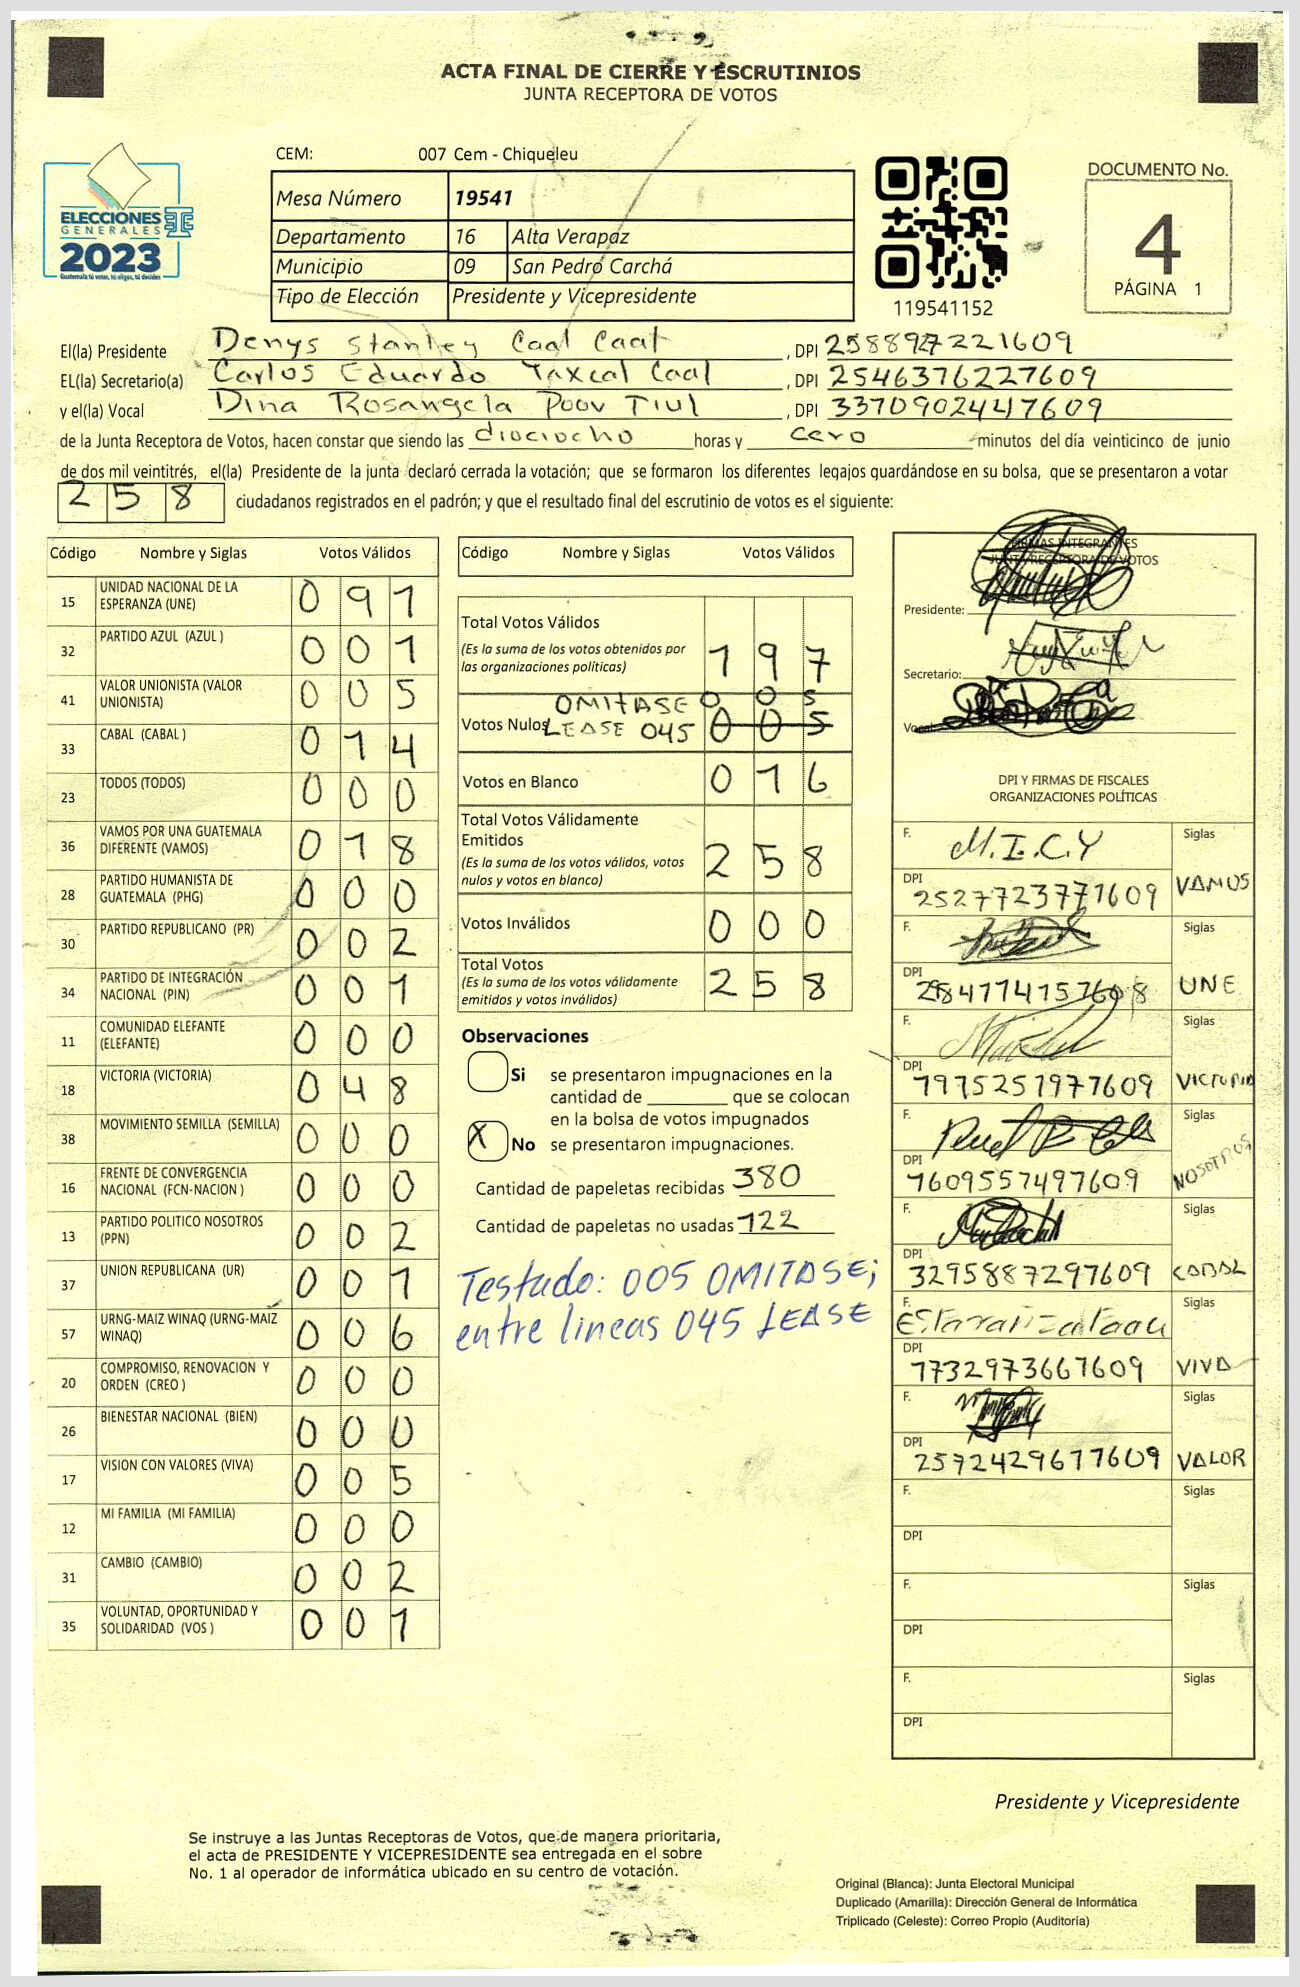 ACTA FINAL DE CIERRE Y ESCRUTINIOS
JUNTA RECEPTORA DE VOTOS
ELECCIONES
GENERALES
2023
Guatemala tú votas, tú eliges, tú decides
CEM: 007 Cem - Chiqueleu
Mesa Número 19541
Departamento 16 Alta Verapaz
Municipio 09 San Pedro Carchá
Tipo de Elección Presidente y Vicepresidente
119541152
DOCUMENTO No.
4
PÁGINA 1
El(la) Presidente Denys Stanley Caal Caal, DPI
EL(la) Secretario(a) Carlos Eduardo Yaxcal Caal, DPI 2546376227609
y el(la) Vocal Dina Rosangela Poov Tiul, DPI 3370902447609
de la Junta Receptora de Votos, hacen constar que siendo las dieciocho horas y cero minutos del día veinticinco de junio
de dos mil veintitrés, el(la) Presidente de la junta declaró cerrada la votación; que se formaron los diferentes legajos guardándose en su bolsa, que se presentaron a votar
258 ciudadanos registrados en el padrón; y que el resultado final del escrutinio de votos es el siguiente:
Código Nombre y Siglas Votos Válidos
15 UNIDAD NACIONAL DE LA ESPERANZA (UNE) 091
32 PARTIDO AZUL (AZUL ) 001
41 VALOR UNIONISTA (VALOR UNIONISTA) 005
33 CABAL (CABAL ) 014
23 TODOS (TODOS) 000
36 VAMOS POR UNA GUATEMALA DIFERENTE (VAMOS) 018
28 PARTIDO HUMANISTA DE GUATEMALA (PHG) 000
30 PARTIDO REPUBLICANO (PR) 002
34 PARTIDO DE INTEGRACIÓN NACIONAL (PIN) 001
11 COMUNIDAD ELEFANTE (ELEFANTE) 000
18 VICTORIA (VICTORIA) 048
38 MOVIMIENTO SEMILLA (SEMILLA) 000
16 FRENTE DE CONVERGENCIA NACIONAL (FCN-NACION ) 000
13 PARTIDO POLITICO NOSOTROS (PPN) 002
37 UNION REPUBLICANA (UR) 001
57 URNG-MAIZ WINAQ (URNG-MAIZ WINAQ) 006
20 COMPROMISO, RENOVACION Y ORDEN (CREO ) 000
26 BIENESTAR NACIONAL (BIEN) 000
17 VISION CON VALORES (VIVA) 005
12 MI FAMILIA (MI FAMILIA) 000
31 CAMBIO (CAMBIO) 002
35 VOLUNTAD, OPORTUNIDAD Y SOLIDARIDAD (VOS ) 001
Código Nombre y Siglas Votos Válidos
Total Votos Válidos
(Es la suma de los votos obtenidos por
las organizaciones políticas) 197
OMITASE 005
Votos Nulos LEASE 045 005
Votos en Blanco 016
Total Votos Válidamente
Emitidos
(Es la suma de los votos válidos, votos
nulos y votos en blanco) 258
Votos Inválidos 000
Total Votos
(Es la suma de los votos válidamente
emitidos y votos inválidos) 258
Observaciones
Si se presentaron impugnaciones en la
cantidad de ________ que se colocan
en la bolsa de votos impugnados
X No se presentaron impugnaciones.
Cantidad de papeletas recibidas 380
Cantidad de papeletas no usadas 122
Testado: 005 OMITASE;
entre lineas 045 LEASE
FIRMAS INTEGRANTES
JUNTA RECEPTORA DE VOTOS
Presidente:
Secretario:
Vocal:
DPI Y FIRMAS DE FISCALES
ORGANIZACIONES POLÍTICAS
F. M.I.C.Y Siglas
DPI 2527723771609 VAMOS
F. Siglas
DPI UNE
F. Siglas
DPI 1975251971609 VICTORIA
F. Siglas
DPI 1609557497609 NOSOTROS
F. Siglas
DPI 3295887297609 CABAL
F. Siglas
DPI 1732973661609 VIVA
F. Siglas
DPI 2572429611609 VALOR
F. Siglas
DPI
F. Siglas
DPI
F. Siglas
DPI
Presidente y Vicepresidente
Se instruye a las Juntas Receptoras de Votos, que de manera prioritaria,
el acta de PRESIDENTE Y VICEPRESIDENTE sea entregada en el sobre
No. 1 al operador de informática ubicado en su centro de votación.
Original (Blanca): Junta Electoral Municipal
Duplicado (Amarilla): Dirección General de Informática
Triplicado (Celeste): Correo Propio (Auditoría)